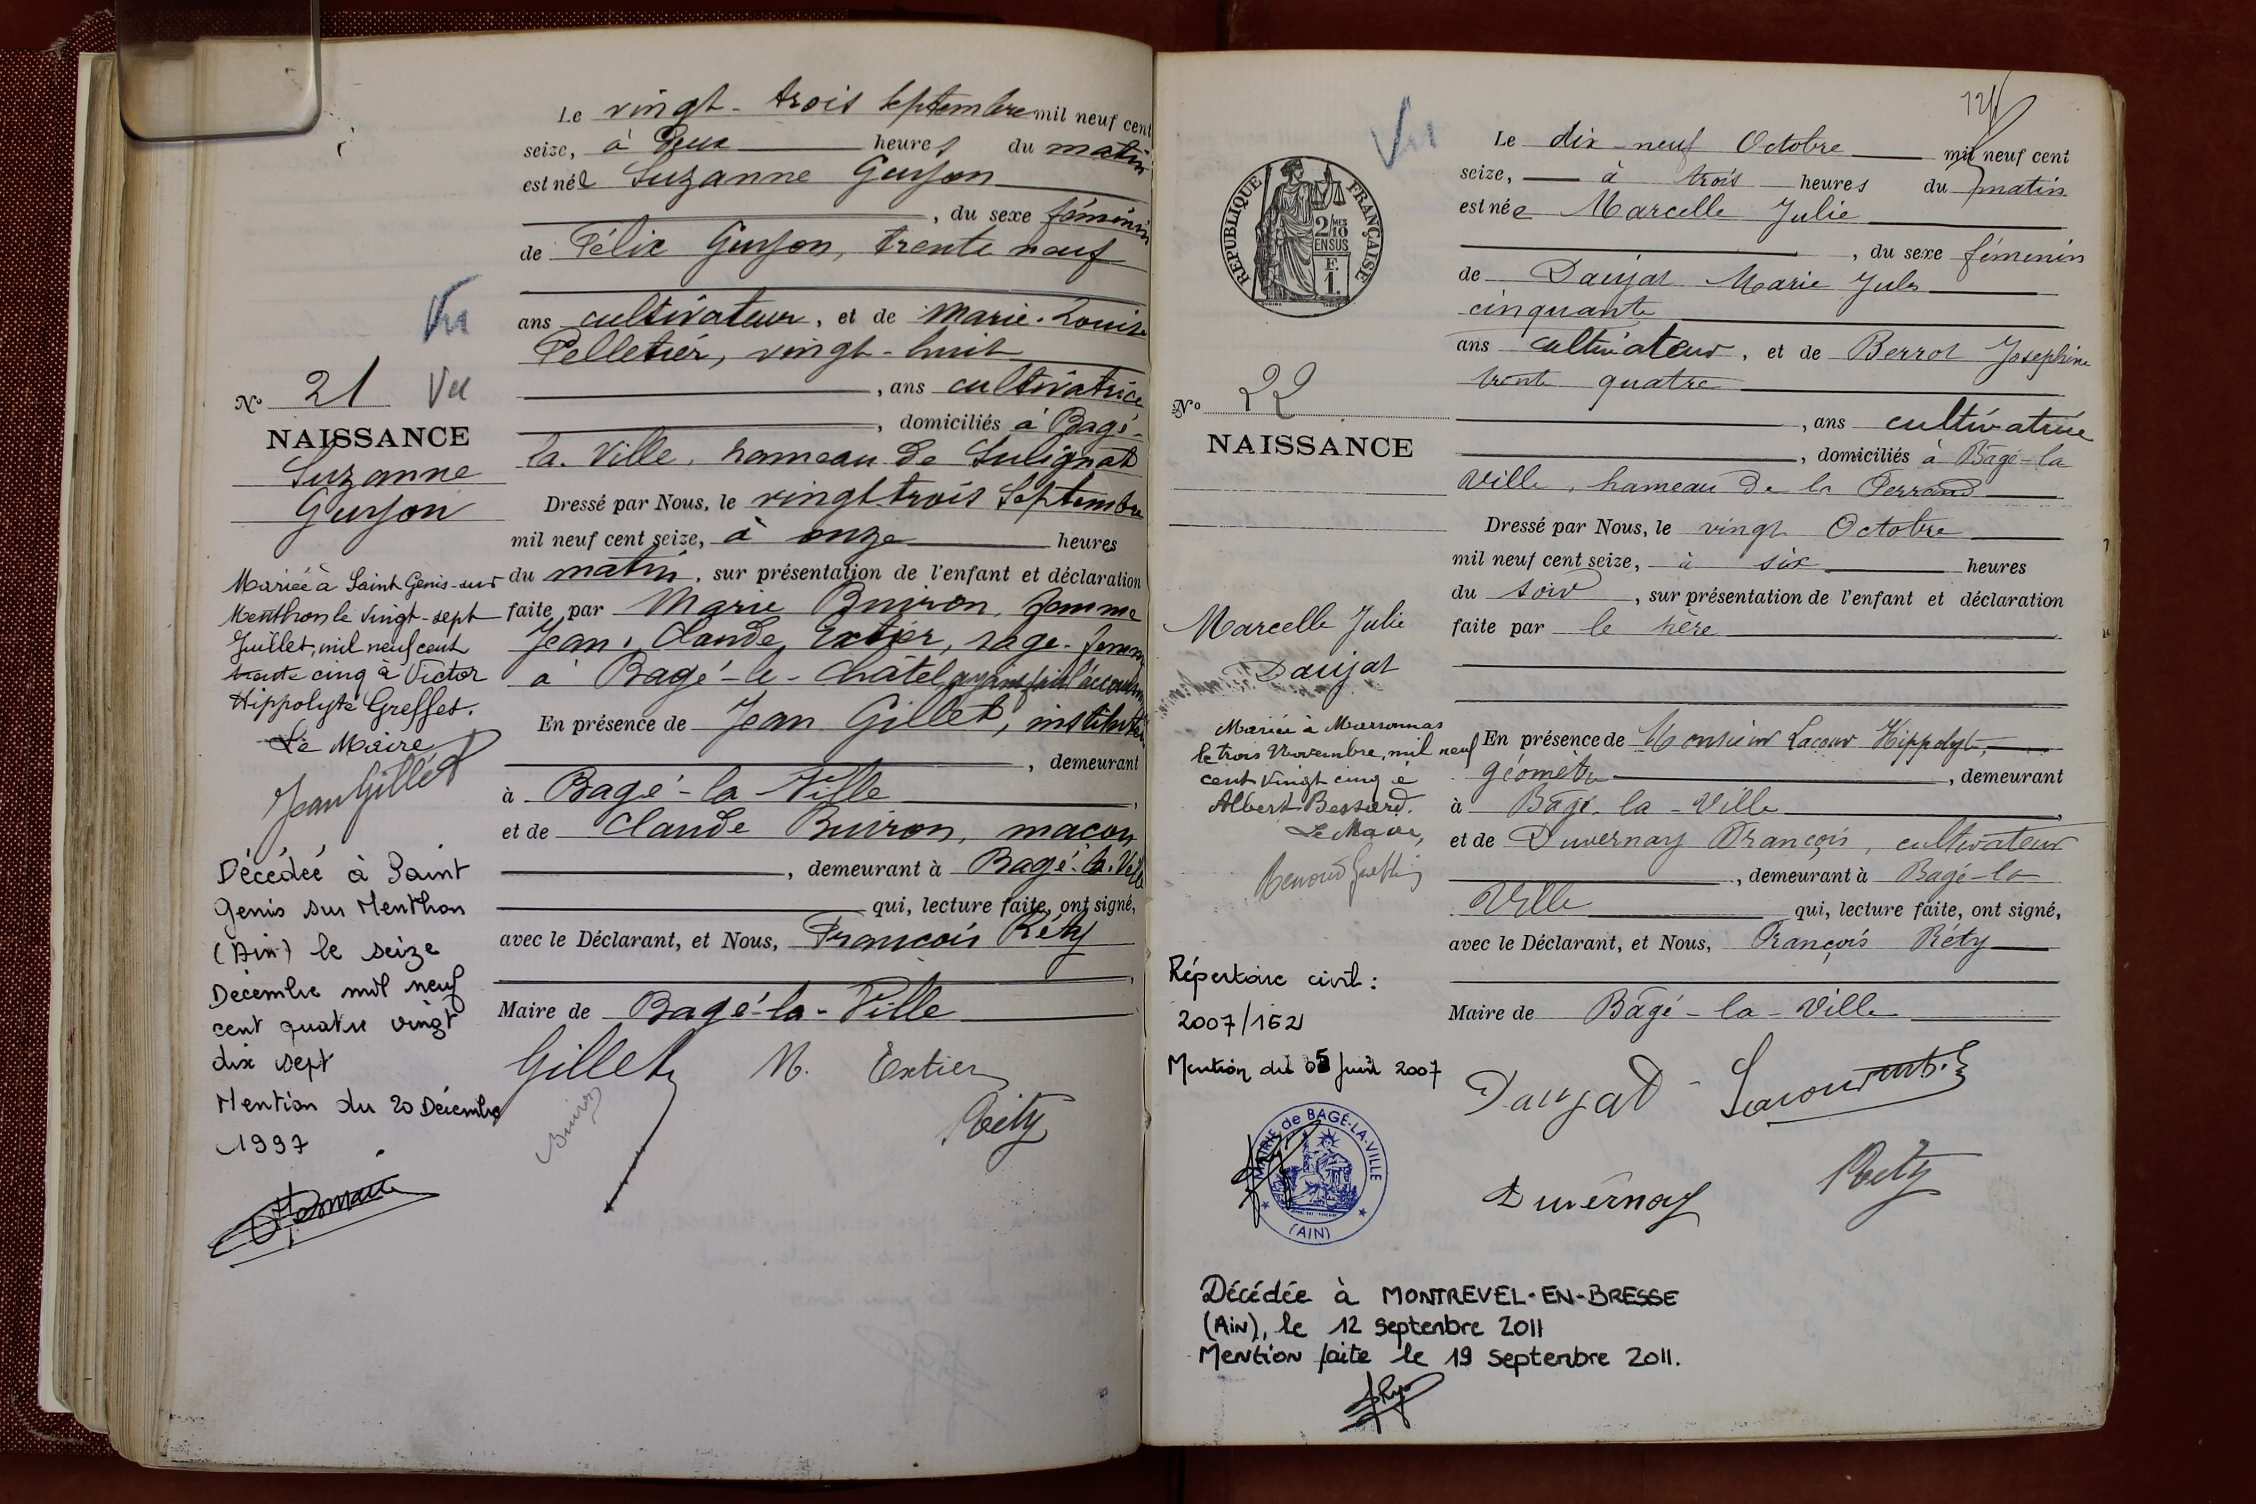 Le vingt-trois Septembre mil neuf cent
seize, à Deux heures du matin
est née Suzanne Guyon
, du sexe féminin
de Félix Guyon, trente neuf
ans cultivateur, et de Marie-Louise
Pelletier, vingt-huit
, ans cultivatrice
, domiciliés à Bagé-
la-Ville, hameau de Sulignat
Dressé par Nous, le vingt-trois Septembre
mil neuf cent seize, à onze heures
du matin, sur présentation de l'enfant et déclaration
faite par Marie Buiron, femme
Jean, Claude Extier, sage-femme
à Bagé-le-Châtel, ayant fait l'accouchement
En présence de Jean Gillet, instituteur
, demeurant
à Bagé-la-Ville,
et de Claude Buiron, maçon
, demeurant à Bagé-la-Ville
qui, lecture faite, ont signé,
avec le Déclarant, et Nous, François Réty
Maire de Bagé-la-Ville
Gillet M. Extier
Buiron
Réty
Vu
No 21 Vu
NAISSANCE
Suzanne
Guyon
Mariée à Saint Genis-sur
Menthon le vingt-sept
Juillet, mil neuf cent
trente cinq à Victor
Hippolyte Greffet.
Le Maire
Jean Gillet
Décédée à Saint
Genis sur Menthon
(Ain) le seize
Décembre mil neuf
cent quatre vingt
dix sept
Mention du 20 Décembre
1997
Vu
RÉPUBLIQUE FRANÇAISE
2/10 MES
EN SUS
F.
1.
Le dix-neuf Octobre mil neuf cent
seize, à trois heures du matin
est née Marcelle Julie
, du sexe féminin
de Daujat Marie Jules
cinquante
ans cultivateur, et de Berrot Josephine
trente quatre
, ans cultivatrice
, domiciliés à Bagé-la
Ville, hameau de la Perrand
Dressé par Nous, le vingt Octobre
mil neuf cent seize, à six heures
du soir, sur présentation de l'enfant et déclaration
faite par le père
En présence de Monsieur Lacour Hippolyte,
géomètre, demeurant
à Bagé-la-Ville,
et de Duvernay François, cultivateur
, demeurant à Bagé-la
Ville qui, lecture faite, ont signé,
avec le Déclarant, et Nous, François Réty
Maire de Bagé-la-Ville
Daujat Lacour
Duvernay Réty
No 22
NAISSANCE
Marcelle Julie
Daujat
Mariée à Marsonnas
le trois Novembre, mil neuf
cent vingt cinq à
Albert Bessard.
Le Maire,
Répertoire civil :
2007/152
Mention du 05 Juin 2007
MAIRIE de BAGÉ-LA-VILLE
(AIN)
Décédée à MONTREVEL-EN-BRESSE
(Ain), le 12 septembre 2011
Mention faite le 19 septembre 2011.